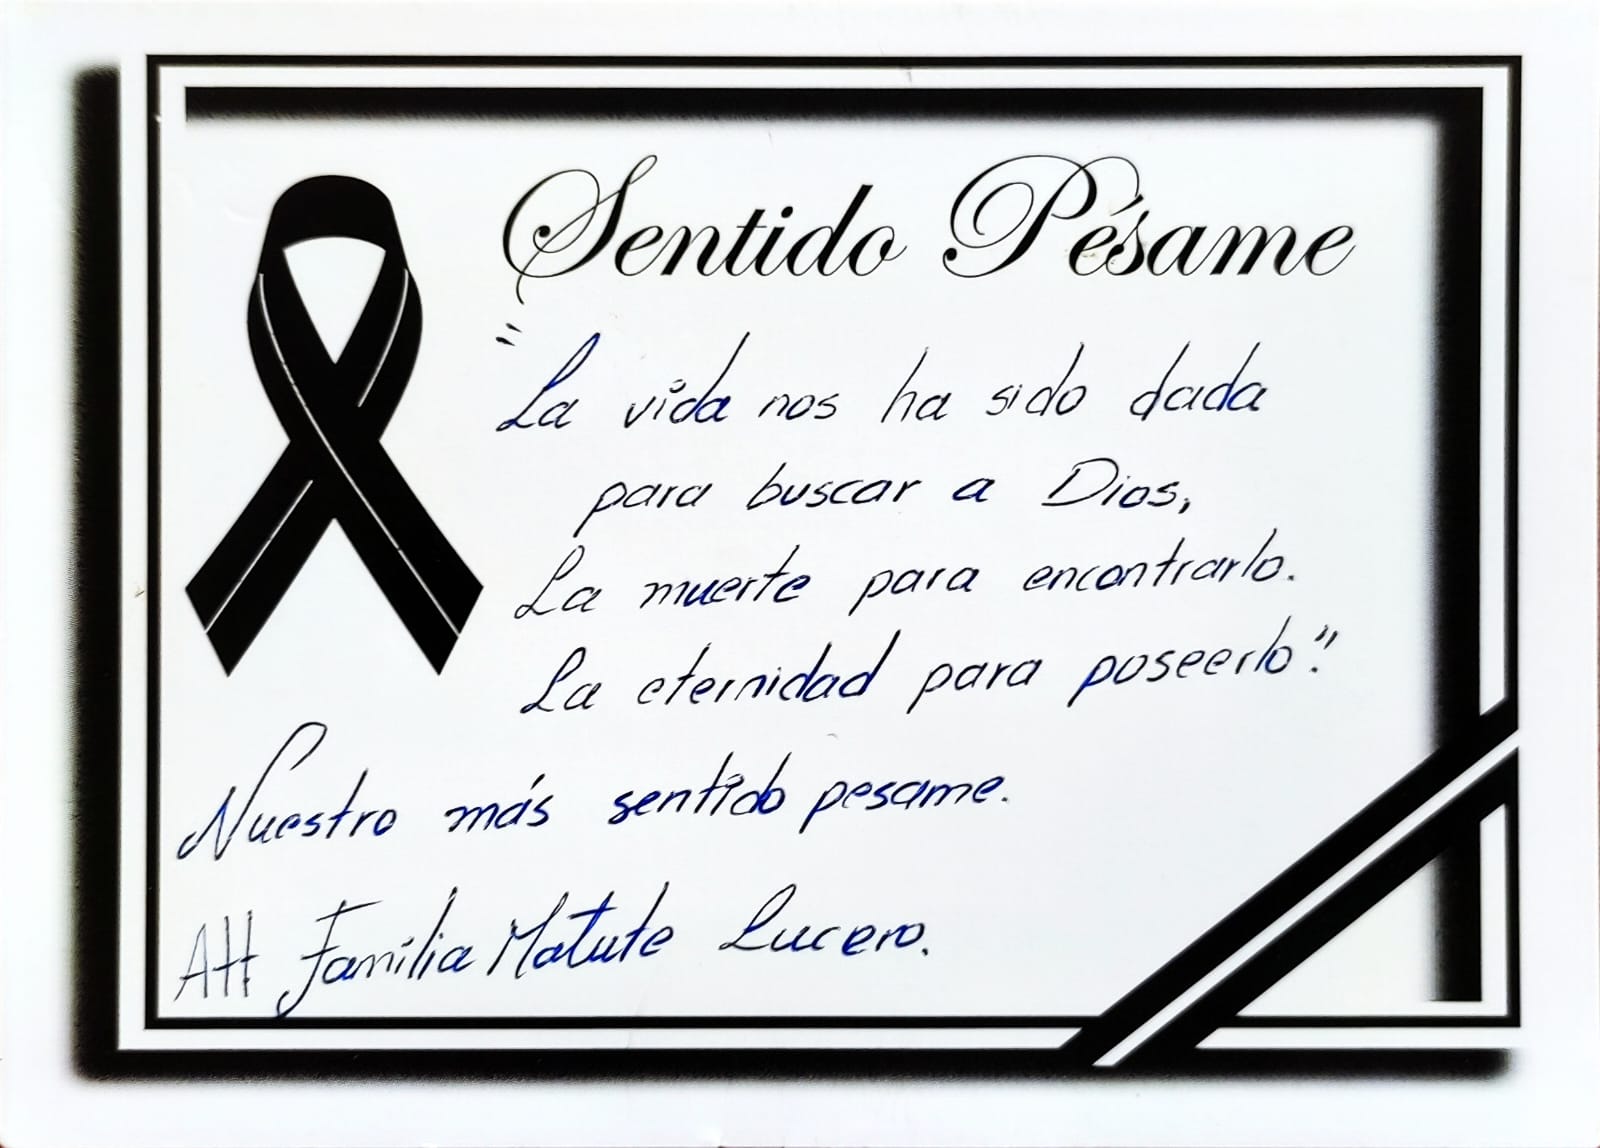 Sentido Pésame
"La vida nos ha sido dada
para buscar a Dios,
La muerte para encontrarlo.
La eternidad para poseerlo."
Nuestro más sentido pesame.
Att Familia Matute Lucero.